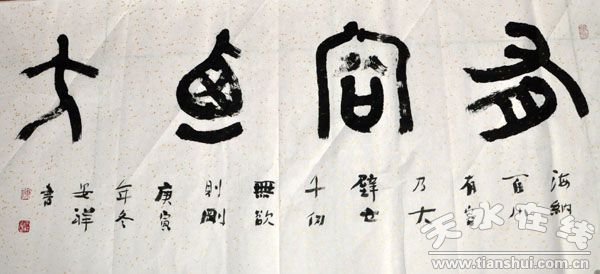 有容迺大
海納
百川
有容
乃大
壁立
千仞
無欲
則剛
庚寅
年冬
安祥
書
天水在线
www.tianshui.com.cn